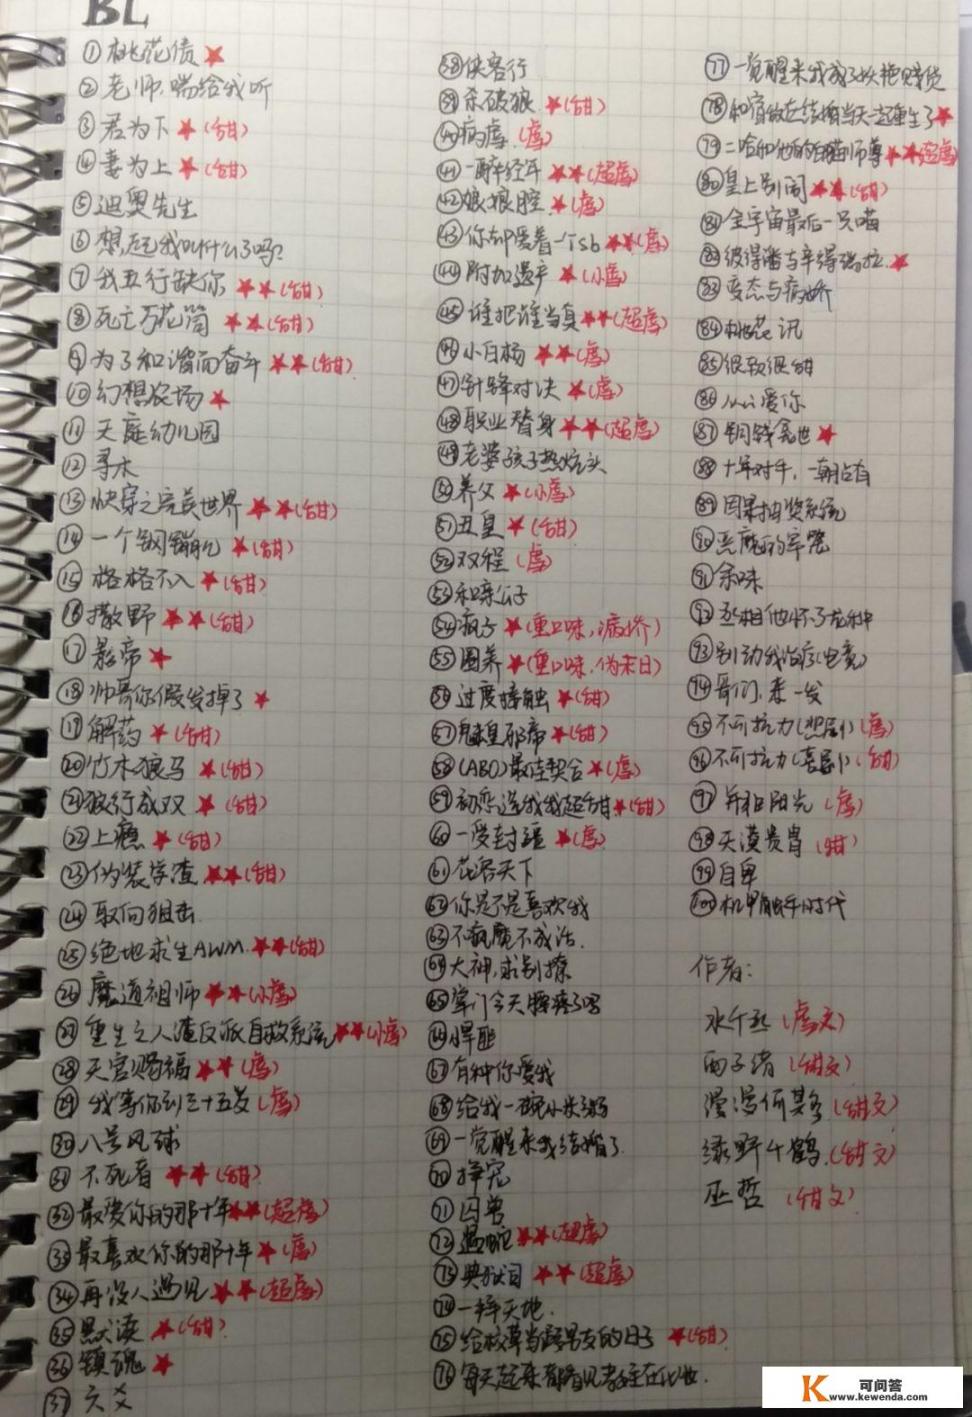 BL
①桃花债★
②老师,喘给我听
③君为下★(甜)
④妻为上★(甜)
⑤迪奥先生
⑥想起我叫什么了吗?
⑦我五行缺你★★(甜)
⑧死亡万花筒★★(甜)
⑨为了和谐而奋斗★★(甜)
⑩幻想农场★
⑪天庭幼儿园
⑫寻木
⑬快穿之完美世界★★(甜)
⑭一个钢镚儿★(甜)
⑮格格不入★(甜)
⑯撒野★★(甜)
⑰影帝★
⑱帅哥你假发掉了★
⑲解药★(甜)
⑳竹木狼马★(甜)
㉑狼行成双★(甜)
㉒上瘾★(甜)
㉓伪装学渣★★(甜)
㉔取向狙击
㉕绝地求生AWM.★★(甜)
㉖魔道祖师★★(小虐)
㉗重生之人渣反派自救系统★★(小虐)
㉘天官赐福★★(虐)
㉙我等你到三十五岁(虐)
㉚八号风球
㉛不死者★★(甜)
㉜最爱你的那十年★★(超虐)
㉝最喜欢你的那十年★(虐)
㉞再没人遇见★★(超虐)
㉟默读★(甜)
㊱镇魂★
㊲六爻
㊳侠客行
㊴杀破狼★(甜)
㊵病虐.(虐)
㊶一醉经年★★(超虐)
㊷娘娘腔★(虐)
㊸你却爱着一个sb★★(虐)
㊹附加遗产★(小虐)
㊺谁把谁当真★★(超虐)
㊻小白杨★★(虐)
㊼针锋对决★(虐)
㊽职业替身★★(超虐)
㊾老婆孩子热炕头
㊿养父★(小虐)
51丑皇★(甜)
52双程(虐)
53和亲公子
54疯子★(重口味,病娇)
55圈养★(重口味,伪末日)
56过度接触★(甜)
57魅皇邪帝★(甜)
58(ABO)最佳契合★(虐)
59初恋选我我超甜★(甜)
60一受封疆★(虐)
61花容天下
62你是不是喜欢我
63不疯魔不成活.
64大神,求别撩
65掌门今天腰疼了吗
66悍匪
67有种你爱我
68给我一碗小米粥
69一觉醒来我结婚了.
70择宠
71囚兽
72遇蛇★★(超虐)
73典狱司★★(超虐)
74一桦天地.
75给校草当假男友的日子★(甜)
76每天起来都看见教主在化妆.
77一觉醒来我成了妖艳贱货
78和宿敌在结婚当天一起重生了★
79二哈和他的白猫师尊★★(超虐)
80皇上别闹★★(甜)
81全宇宙最后一只喵
82彼得潘与辛得瑞拉.★
83变态与病娇
84桃花讯
85很软很甜
86从心爱你
87铜钱龛世★
88十年对手,一朝占有
89因果抽奖系统
90恶魔的牢笼
91余味
92丞相他怀了龙种
93别动我治疗(电竞)
94哥们,来一发
95不可抗力(悲剧)(虐)
96不可抗力(喜剧)(甜)
97并和阳光(虐)
98天漠贵胄(甜)
99自卑
100机甲触手时代
作者:
水千丞(虐文)
西子绪(甜文)
漫漫何其多(甜文)
绿野千鹤.(甜文)
巫哲(甜文)
可问答
www.kewenda.com